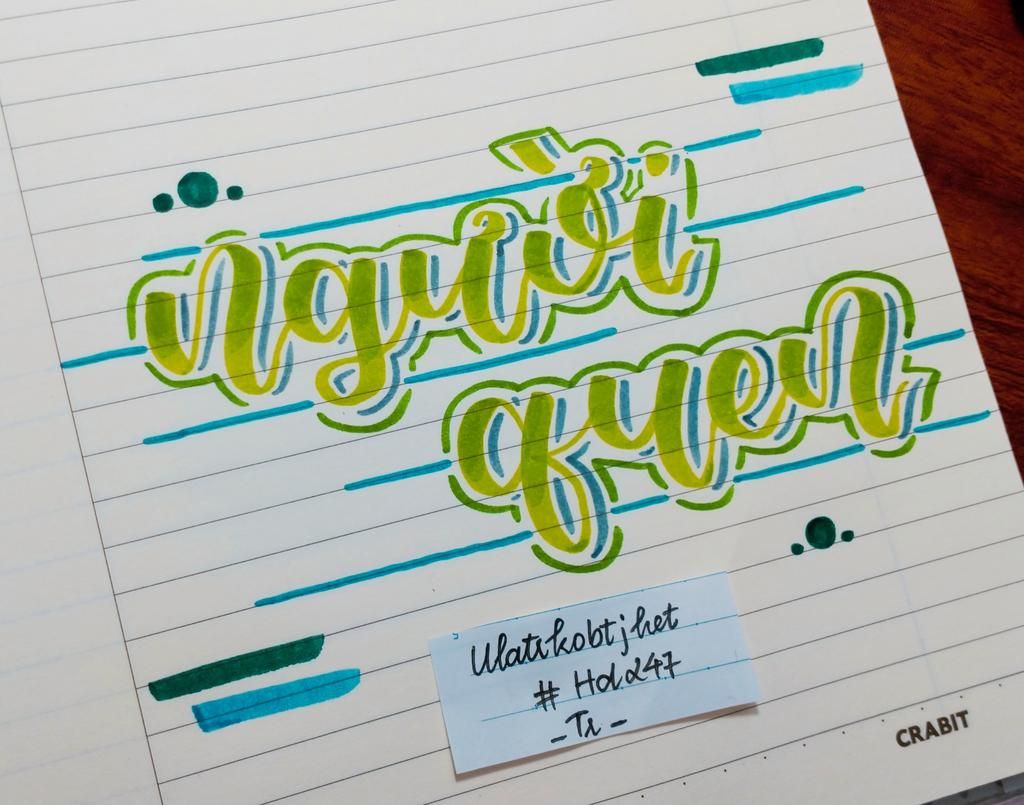 người
quen
Ulatikobtjhet
# Hdd247
-Tr-
CRABIT